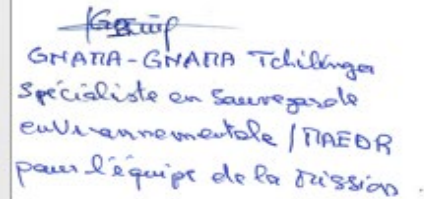 GNAMA-GNAMA Tchilinga
Spécialiste en Sauvegarde
environnementale / MAEDR
pour l'équipe de la Mission.